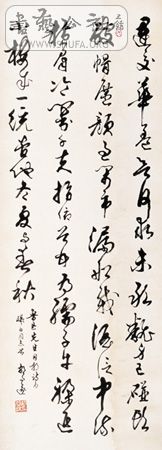 運交華蓋欲何求未敢翻身已碰頭
破帽遮顏過鬧市漏船載酒泛中流
橫眉冷對千夫指俯首甘為孺子牛躲進
小樓成一統管他冬夏與春秋
魯迅先生自嘲詩
同志